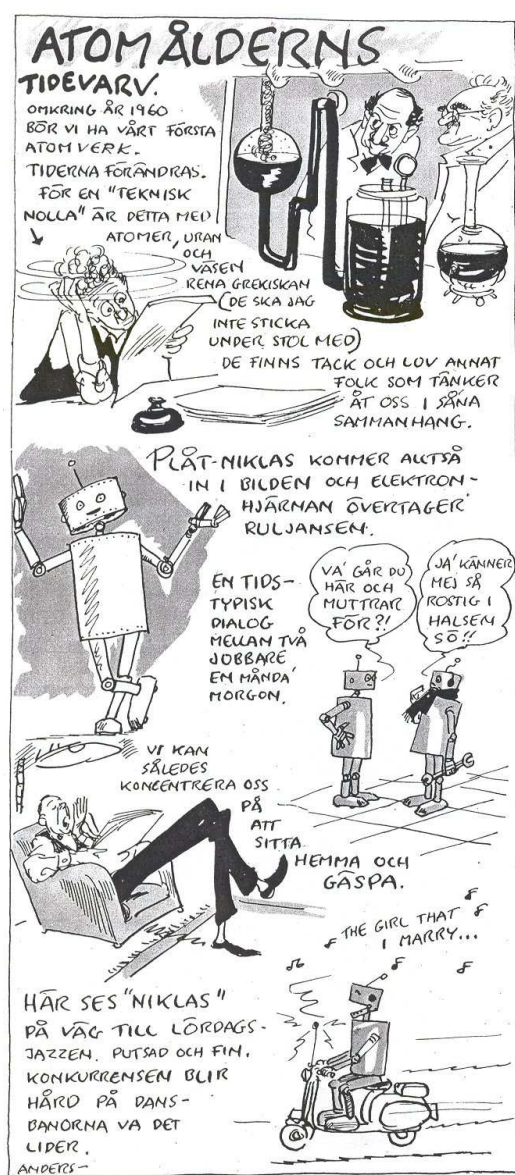 ATOMÅLDERNS
TIDEVARV.
OMKRING ÅR 1960
BÖR VI HA VÅRT FÖRSTA
ATOMVERK.
TIDERNA FÖRÄNDRAS.
FÖR EN "TEKNISK
NOLLA" ÄR DETTA MED
ATOMER, URAN
OCH
VÄSEN
RENA GREKISKAN
(DE SKA JAG
INTE STICKA
UNDER STOL MED)
DE FINNS TACK OCH LOV ANNAT
FOLK SOM TÄNKER
ÅT OSS I SÅNA
SAMMANHANG.
PLÅT-NIKLAS KOMMER ALLTSÅ
IN I BILDEN OCH ELEKTRON-
HJÄRNAN ÖVERTAGER
RULJANSEN.
EN TIDS-
TYPISK
DIALOG
MELLAN TVÅ
JOBBARE
EN MÅNDA'
MORGON.
VA' GÅR DU
HÄR OCH
MUTTRAR
FÖR?!
JA' KÄNNER
MEJ SÅ
ROSTIG I
HALSEN
SÖ!!
VI KAN
SÅLEDES
KONCENTRERA OSS
PÅ
ATT
SITTA
HEMMA OCH
GÄSPA.
THE GIRL THAT
I MARRY...
HÄR SES "NIKLAS"
PÅ VÄG TILL LÖRDAGS-
JAZZEN. PUTSAD OCH FIN.
KONKURRENSEN BLIR
HÅRD PÅ DANS-
BANORNA VA DET
LIDER.
ANDERS-